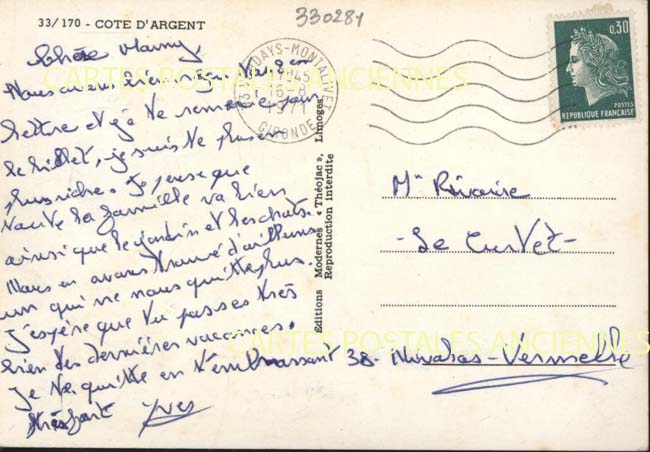 33/170 - COTE D'ARGENT
330281
Chère Mamy,
Nous avons bien reçu ta
lettre et je te remercie pour
le billet, je suis le plus
plus riche. Je pense que
toute la famille va bien
ainsi que le jardin et les chats.
Nous en avons trouvé d'ailleurs
un qui ne nous quitte plus.
J'espère que tu passes très
bien tes dernières vacances.
Je te quitte en t'embrassant
très fort Yves
VENDAYS-MONTALIVET
16-8
1971
GIRONDE
0,30
POSTES
REPUBLIQUE FRANÇAISE
Editions Modernes « Théojac », Limoges
Reproduction interdite
Mme
- Le Curvet -
38-
CARTES POSTALES ANCIENNES
CARTES POSTALES ANCIENNES